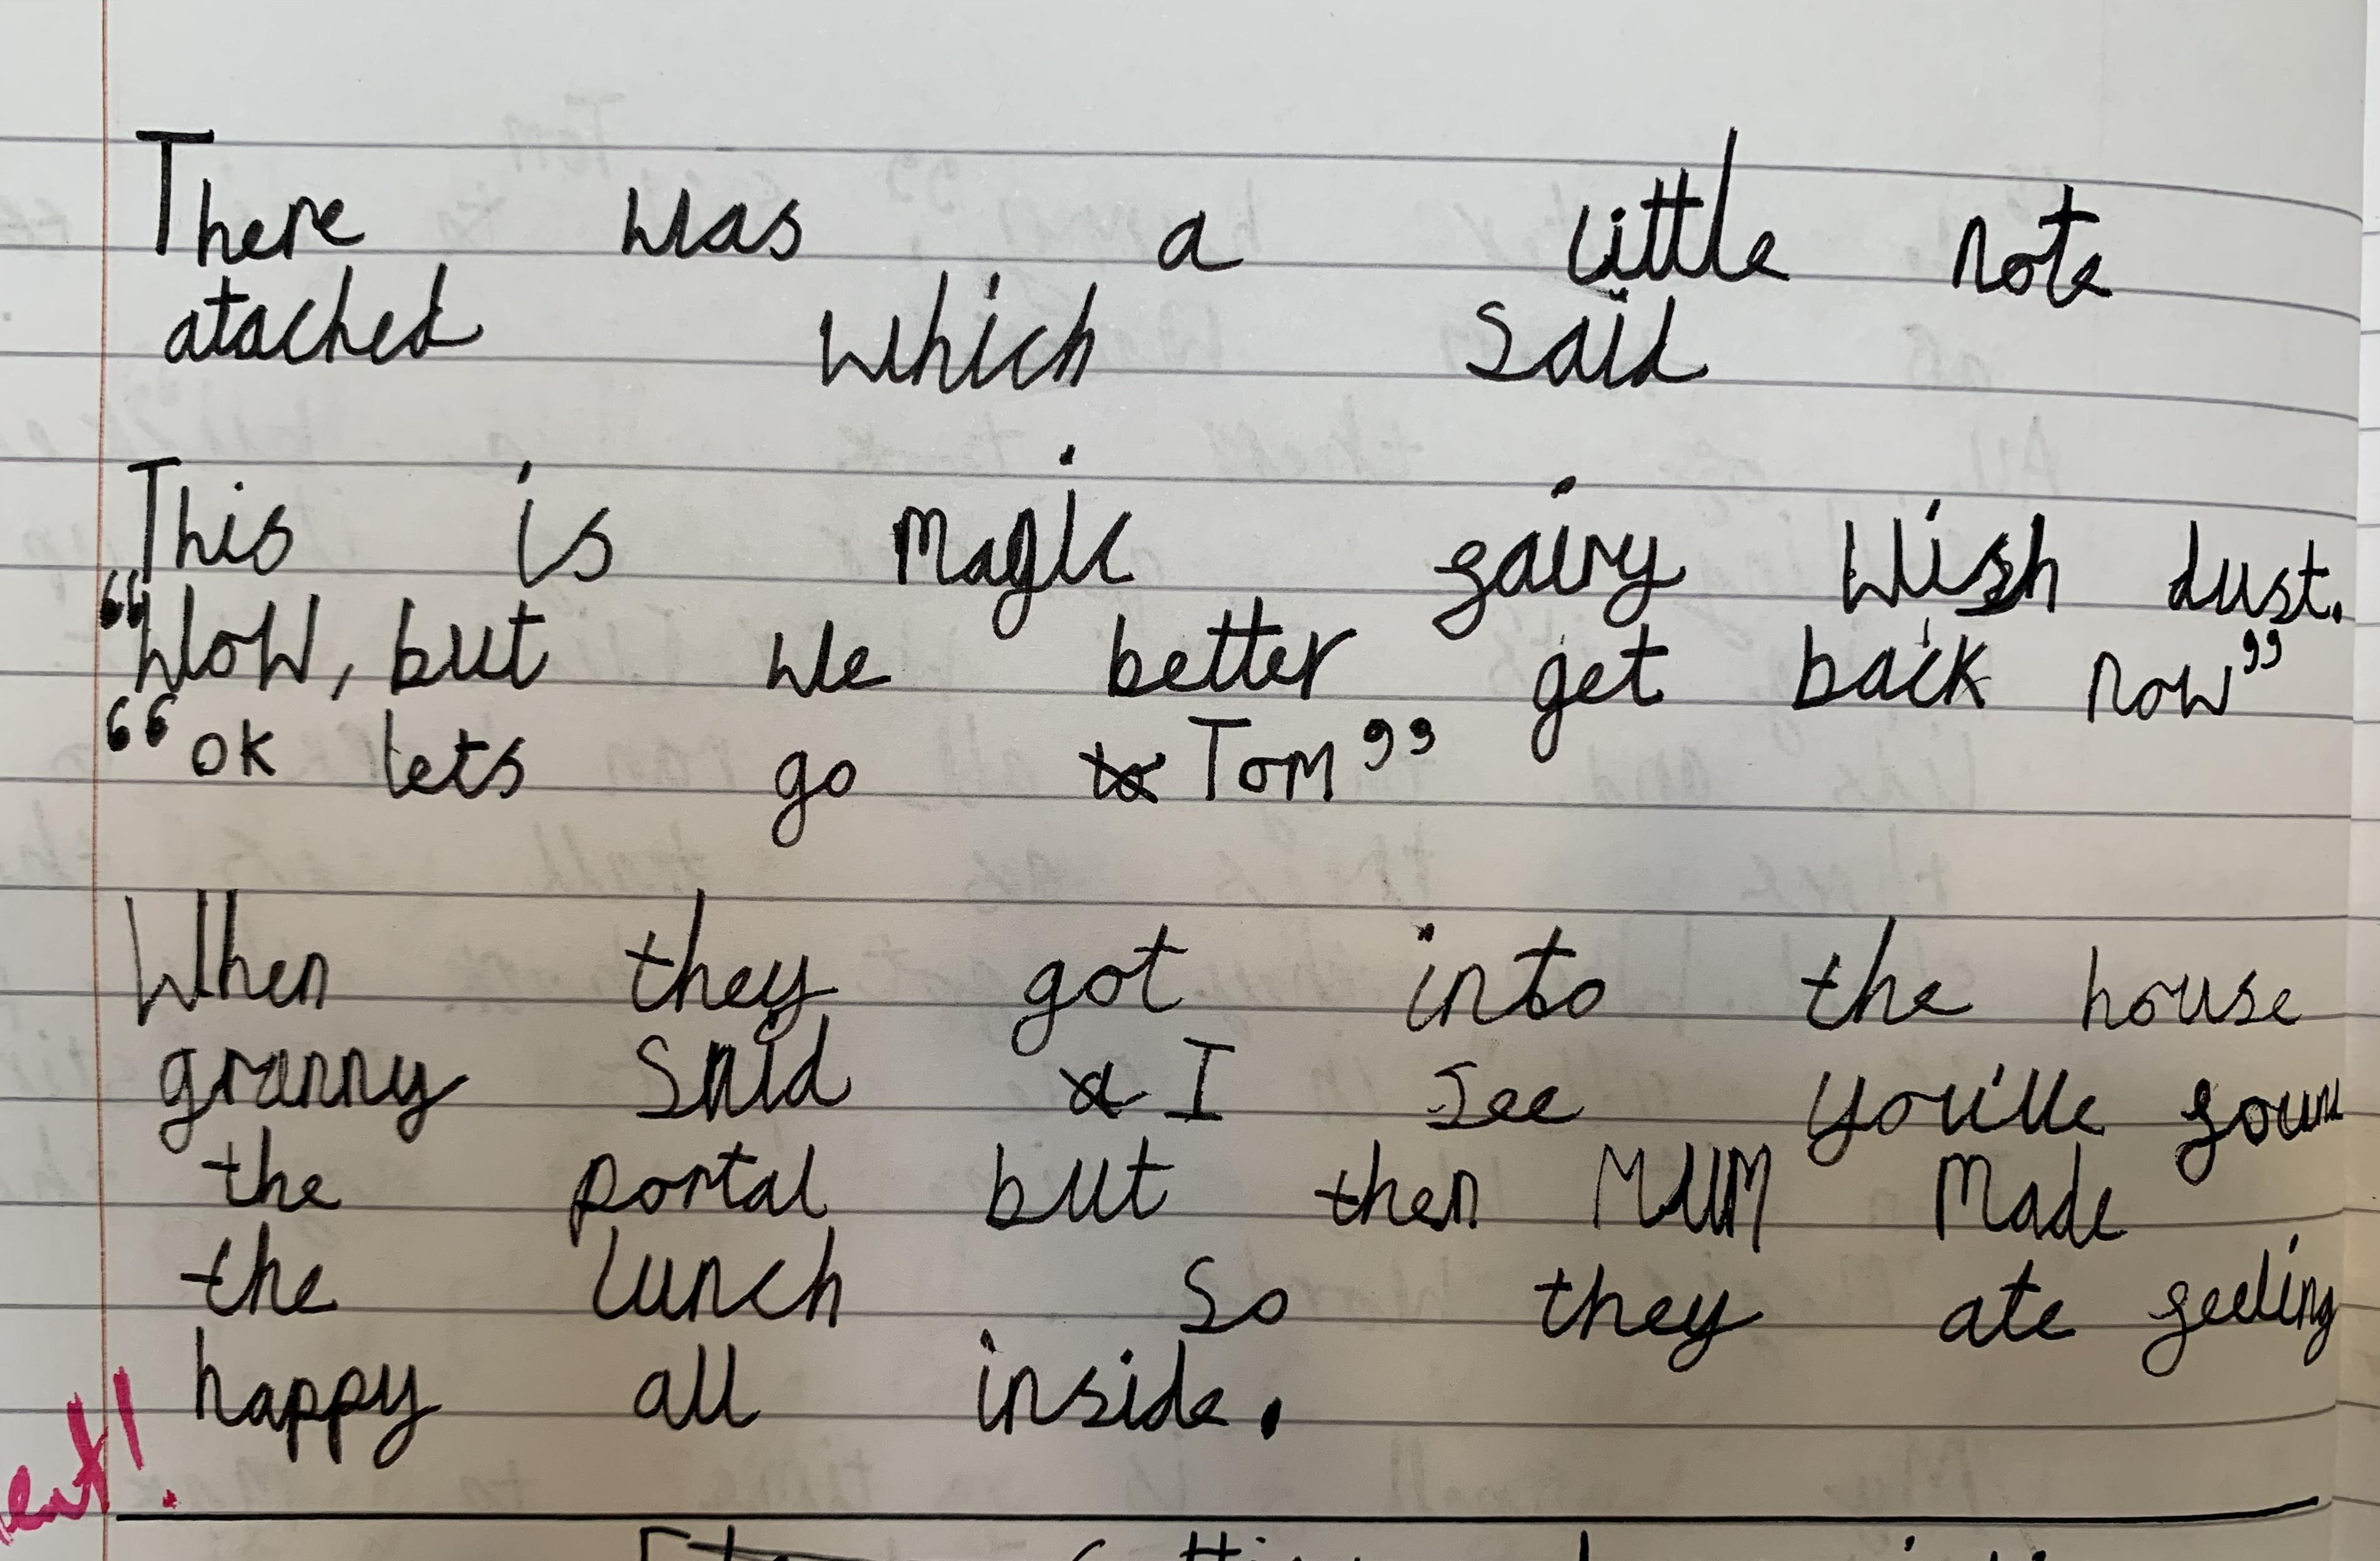 There was a little note
atached which said
This is magic fairy wish dust.
“Wow, but we better get back now”
“ok lets go to Tom”
When they got into the house
granny said a I see you'lle found
the portal but then MUM made
the lunch so they ate feeling
happy all inside.